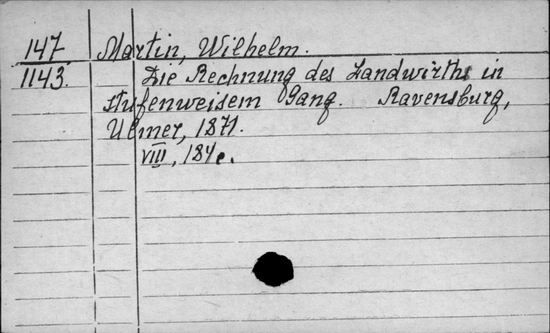 147 Martin, Wilhelm.
1143. Die Rechnung des Landwirths in
stufenweisem Gang. Ravensburg,
Ulmer, 1871.
VIII, 184 c.